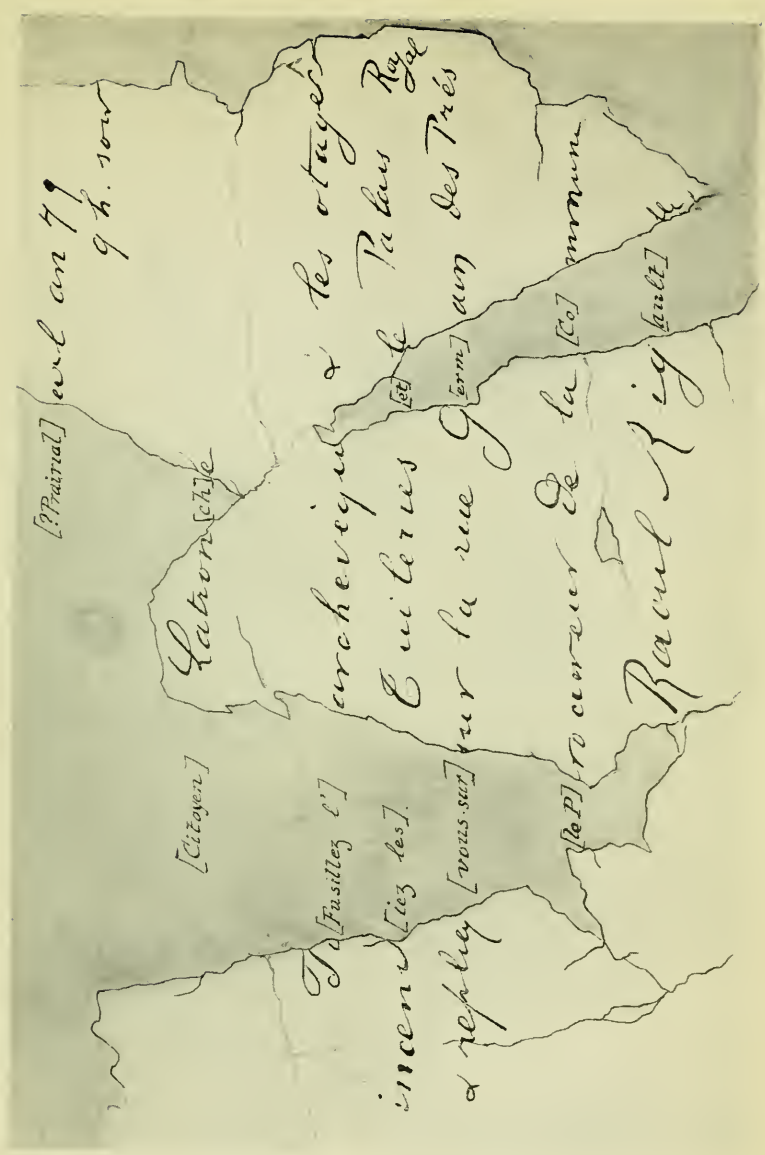 [?Prairial] al an 79
9 h. soir
[Citoyen] Latron[ch]e
[Fusillez l'] archevêque & les otages
incend[iez les]. Tuileries [et] le Palais Royal
& repliez [vous·sur] sur la rue G[erm]ain des Prés
[le P]rocureur de la [Co]mmune
Raoul Rig[ault]